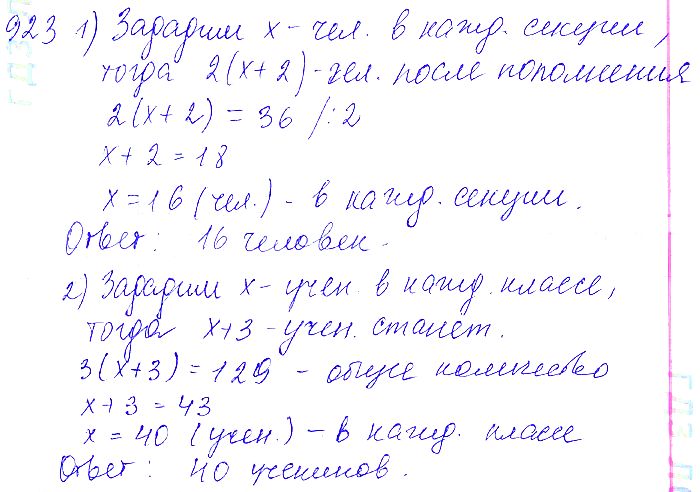 923 1) Зададим x - чел. в кажд. секции,
тогда 2(x+2) - чел. после пополнения
2(x+2) = 36 /:2
x + 2 = 18
x = 16 (чел.) - в кажд. секции.
Ответ: 16 человек.
2) Зададим x - учен. в кажд. классе,
тогда x+3 - учен. станет.
3(x+3) = 129 - общее количество
x + 3 = 43
x = 40 (учен.) - в кажд. классе
Ответ: 40 учеников.